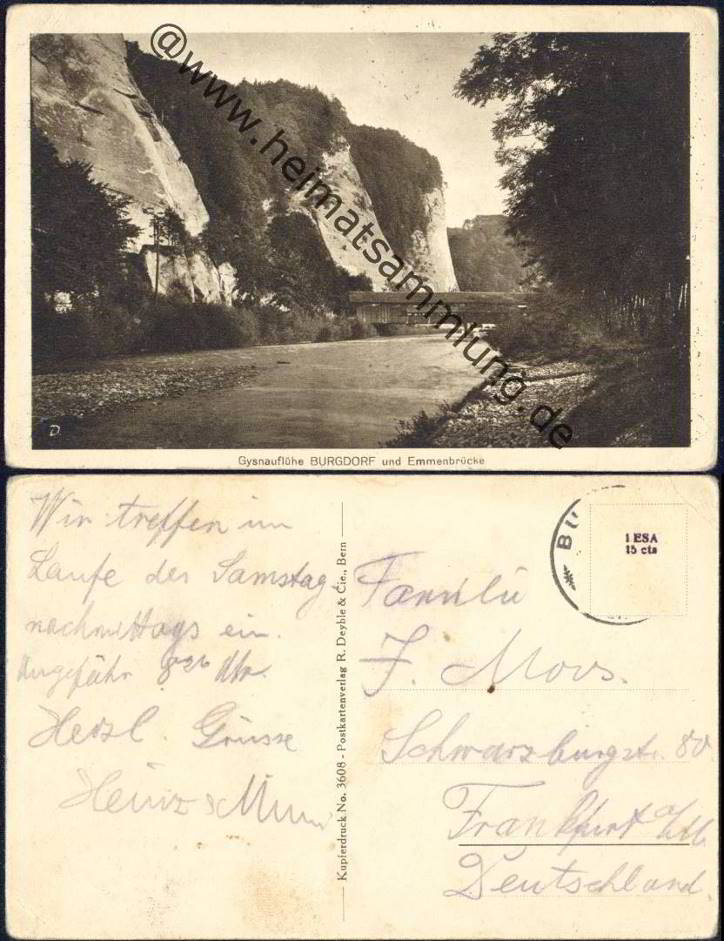 @www.heimatsammlung.de
D.
Gysnauflühe BURGDORF und Emmenbrücke
Wir treffen im
Laufe des Samstag-
nachmittags ein.
Ungefähr Uhr.
Herzl. Grüsse
Heinz &
Kupferdruck No. 3608 - Postkartenverlag R. Deyhle & Cie., Bern
BU
1 ESA
15 cts
Familie
J. Moos.
Schwarzburgstr. 80
Frankfurt a/M.
Deutschland.